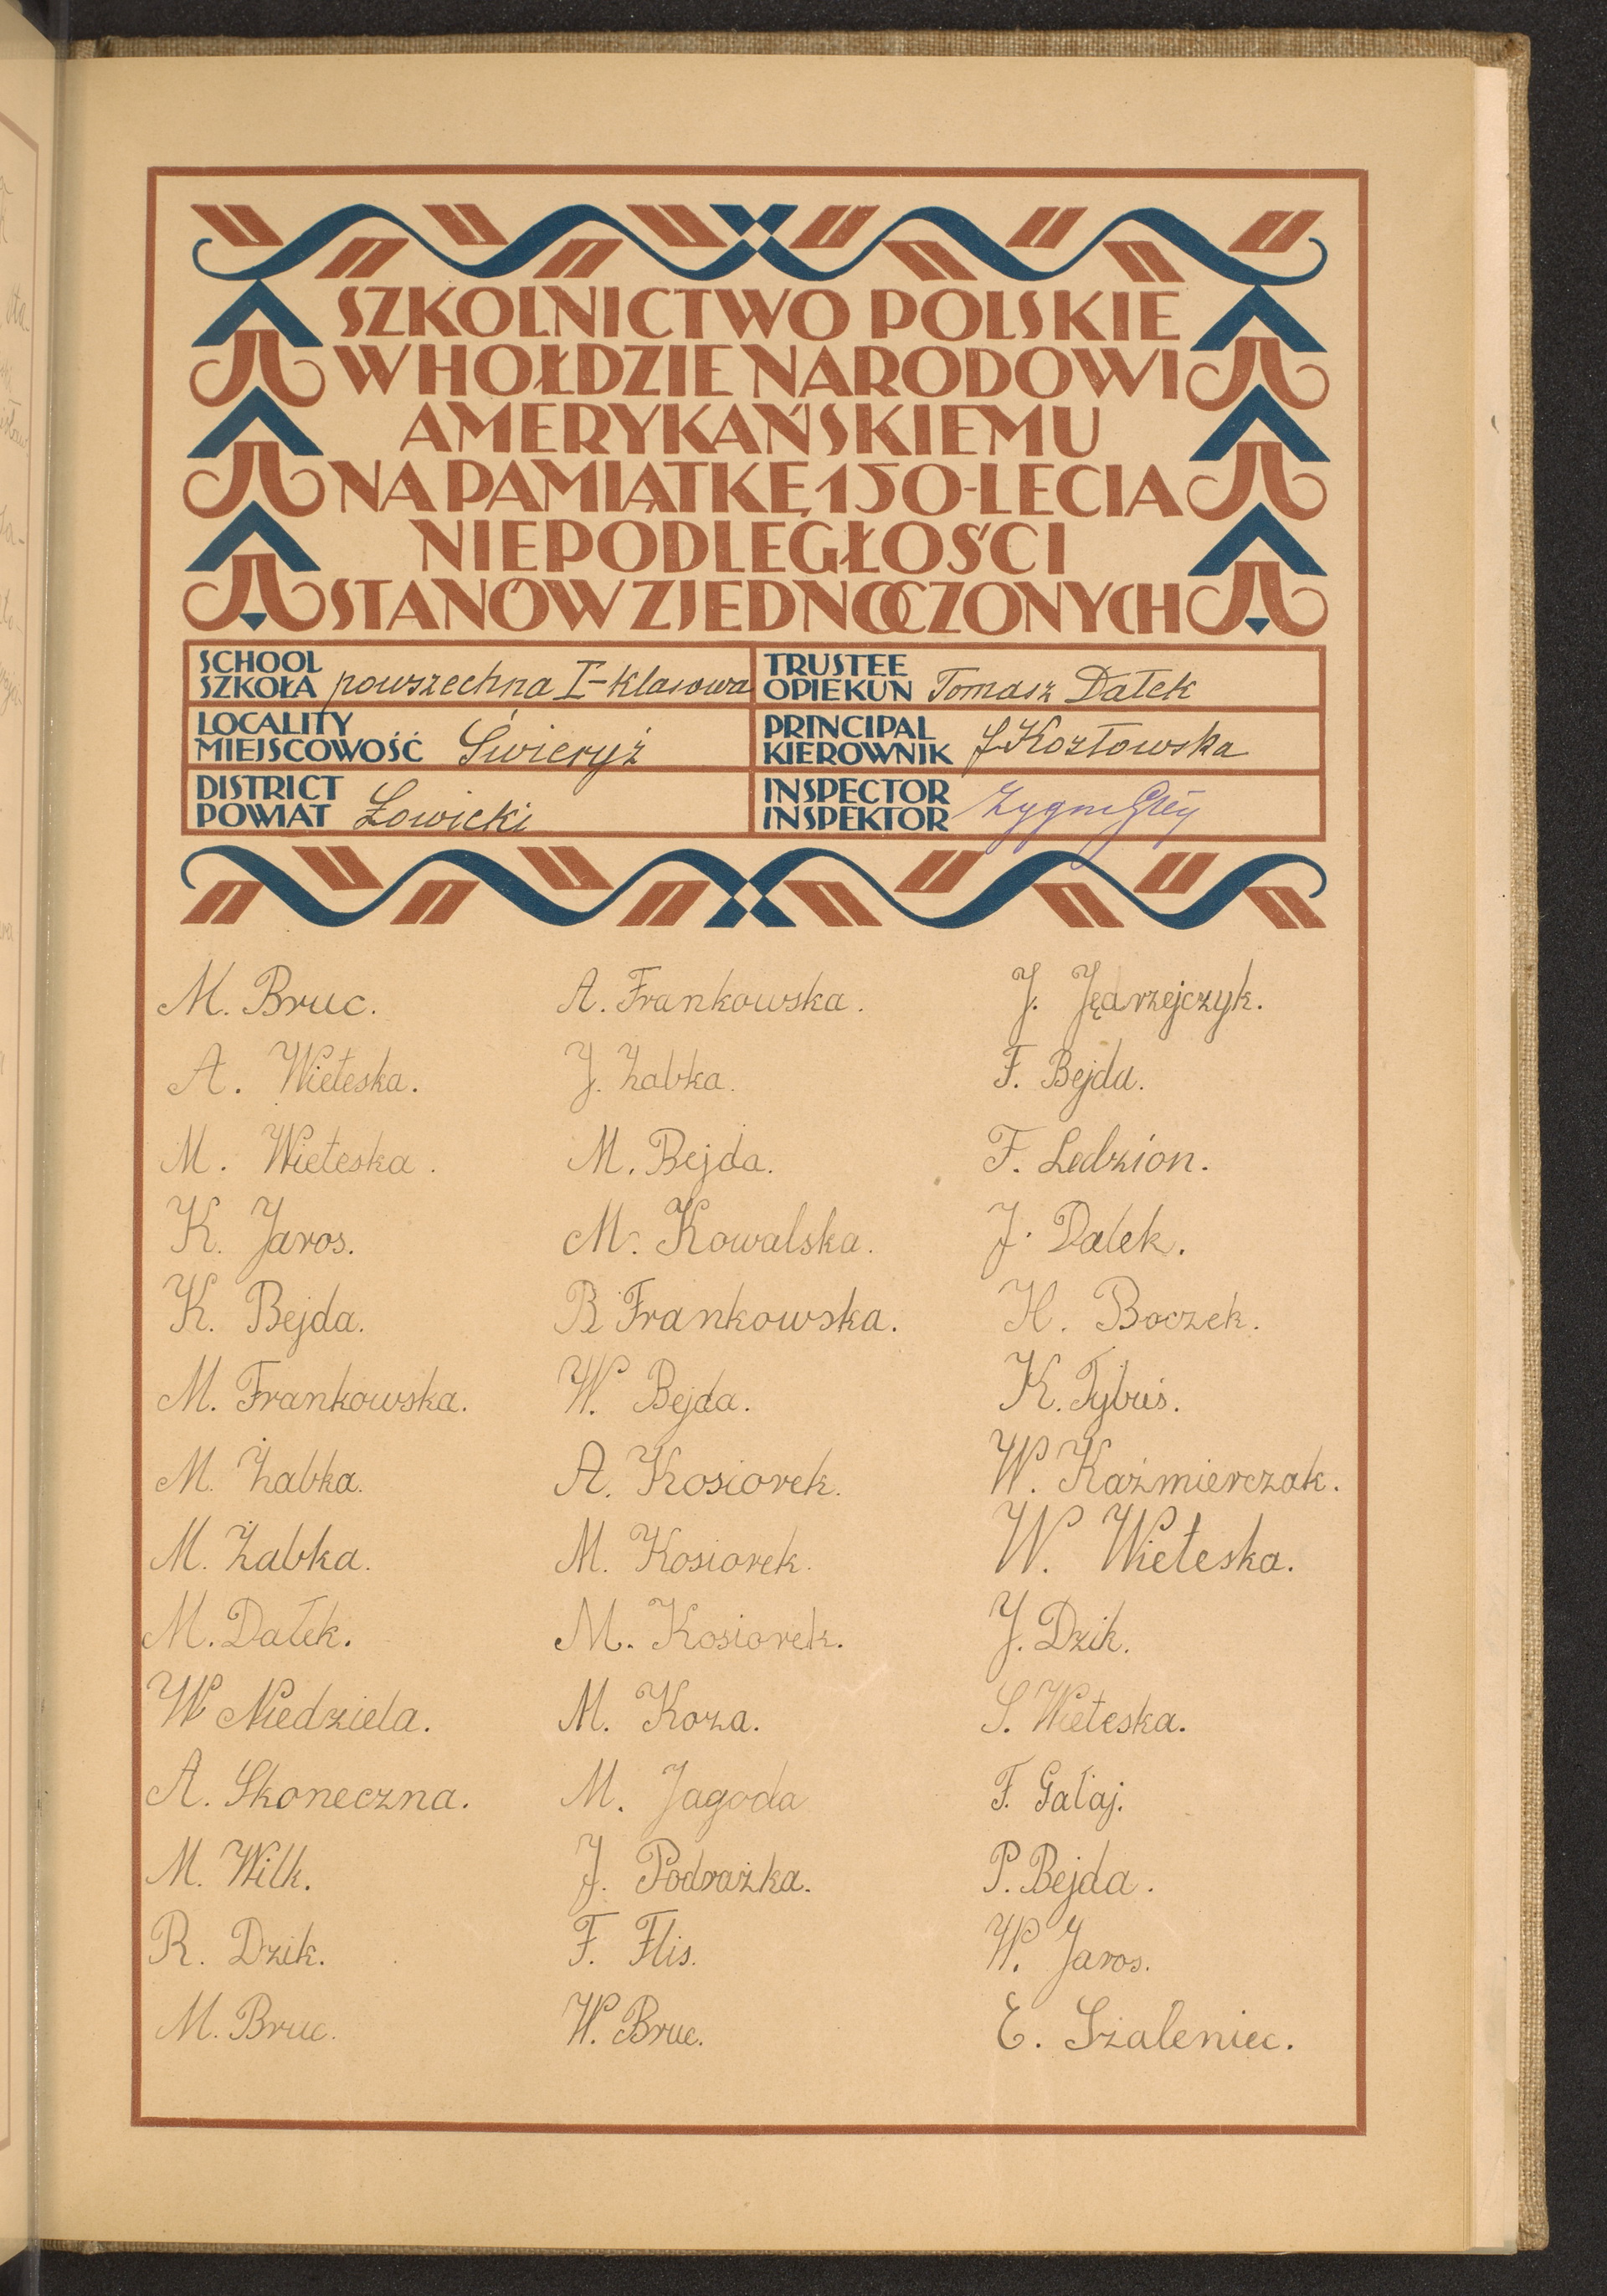 SZKOLNICTWO POLSKIE
W HOŁDZIE NARODOWI
AMERYKAŃSKIEMU
NA PAMIĄTKĘ 150-LECIA
NIEPODLEGŁOŚCI
STANÓW ZJEDNOCZONYCH
SCHOOL
SZKOŁA powszechna I-klasowa
TRUSTEE
OPIEKUN Tomasz Dałek
LOCALITY
MIEJSCOWOŚĆ Świeryż
PRINCIPAL
KIEROWNIK J Kozłowska
DISTRICT
POWIAT Łowicki
INSPECTOR
INSPEKTOR Zygm
M. Bruc.
A. Wieteska.
M. Wieteska.
K. Jaros.
K. Bejda.
M. Frankowska.
M. Żabka.
M. Żabka.
M. Dałek.
W Niedziela.
A. Skoneczna.
M. Wilk.
R. Dzik.
M. Bruc.
A. Frankowska.
J. Żabka.
M. Bejda.
M. Kowalska.
B Frankowska.
W. Bejda.
A. Kosiorek.
M. Kosiorek.
M. Kosiorek.
M. Koza.
M. Jagoda
J. Podrażka.
F. Flis.
W. Bruc.
J. Jędrzejczyk.
F. Bejda.
F. Ledzion.
J. Dałek.
H. Boczek.
K. Tybuś.
W. Kaźmierczak.
W. Wieteska.
J. Dzik.
S. Wieteska.
F. Gałaj.
P. Bejda.
W. Jaros.
E. Szaleniec.